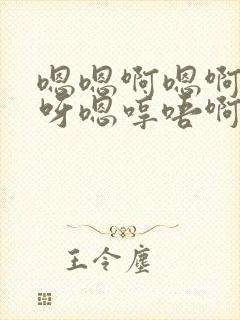 嗯嗯啊嗯啊
呀嗯哼唔啊
王令尘